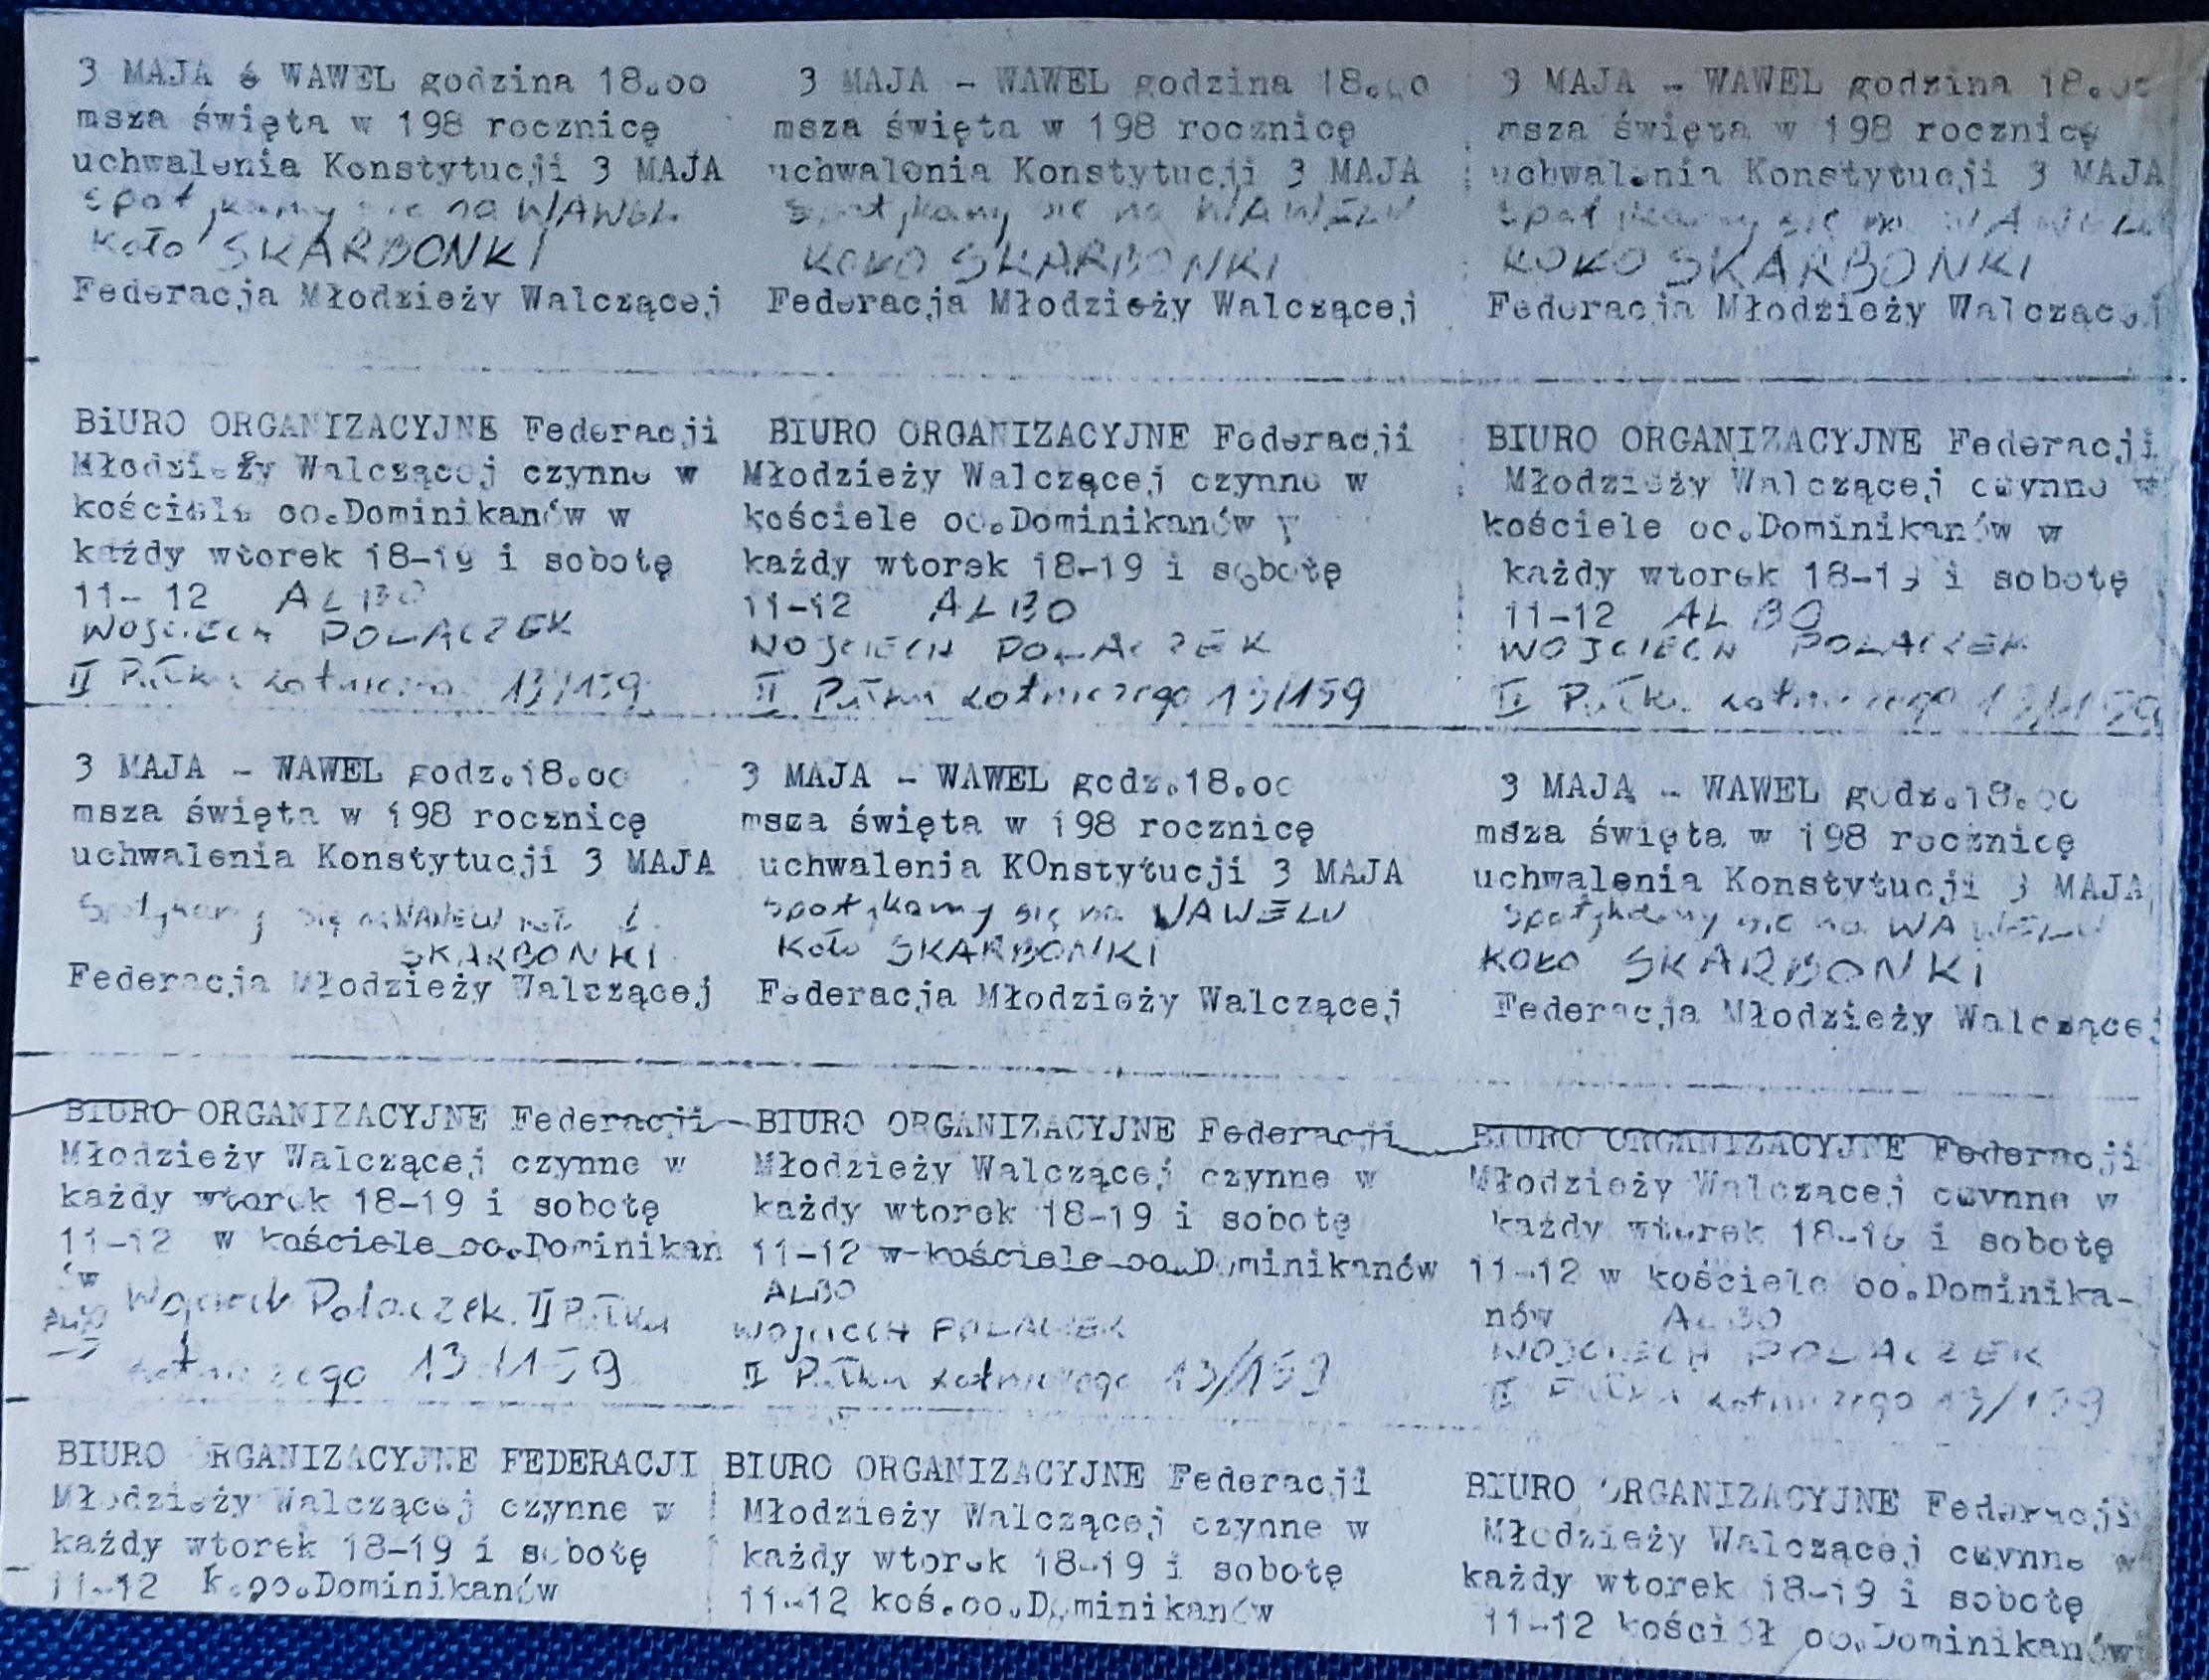 3 MAJA WAWEL godzina 18.oo
msza święta w 198 rocznicę
uchwalenia Konstytucji 3 MAJA
spotykamy się na WAWELU
Koło SKARBONKI
Federacja Młodzieży Walczącej
3 MAJA - WAWEL godzina 18.oo
msza święta w 198 rocznicę
uchwalenia Konstytucji 3 MAJA
spotykamy się na WAWELU
KOŁO SKARBONKI
Federacja Młodzieży Walczącej
3 MAJA - WAWEL godzina 18.oo
msza święta w 198 rocznicę
uchwalenia Konstytucji 3 MAJA
spotykamy się na WAWELU
KOŁO SKARBONKI
Federacja Młodzieży Walczącej
BiURO ORGANIZACYJNE Federacji
Młodzieży Walczącej czynne w
kościele oo.Dominikanów w
każdy wtorek 18-19 i sobotę
11-12 ALBO
WOJCIECH POLACZEK
II Pułku Lotniczego 13/159
BIURO ORGANIZACYJNE Federacji
Młodzieży Walczącej czynne w
kościele oo.Dominikanów
każdy wtorek 18-19 i sobotę
11-12 ALBO
WOJCIECH POLACZEK
II Pułku Lotniczego 13/159
BIURO ORGANIZACYJNE Federacji
Młodzieży Walczącej czynne w
kościele oo.Dominikanów w
każdy wtorek 18-19 i sobotę
11-12 ALBO
WOJCIECH POLACZEK
II Pułku Lotniczego 13/159
3 MAJA - WAWEL godz.18.oo
msza święta w 198 rocznicę
uchwalenia Konstytucji 3 MAJA
Spotykamy się na WAWELU
SKARBONKI
Federacja Młodzieży Walczącej
3 MAJA - WAWEL godz.18.oo
msza święta w 198 rocznicę
uchwalenia KOnstytucji 3 MAJA
spotykamy się na WAWELU
Koło SKARBONKI
Federacja Młodzieży Walczącej
3 MAJA - WAWEL godz.18.oo
msza święta w 198 rocznicę
uchwalenia Konstytucji 3 MAJA
spotykamy się na WAWELU
KOŁO SKARBONKI
Federacja Młodzieży Walczącej
BIURO ORGANIZACYJNE Federacji
Młodzieży Walczącej czynne w
każdy wtorek 18-19 i sobotę
11-12 w kościele oo.Dominikan
ów
ALBO Wojciech Polaczek II Pułku
Lotniczego 13/159
BIURO ORGANIZACYJNE Federacji
Młodzieży Walczącej czynne w
każdy wtorek 18-19 i sobotę
11-12 w kościele oo.Dominikanów
ALBO
WOJCIECH POLACZEK
II Pułku Lotniczego 13/159
BIURO ORGANIZACYJNE Federacji
Młodzieży Walczącej czynne w
każdy wtorek 18-19 i sobotę
11-12 w kościele oo.Dominika-
nów ALBO
WOJCIECH POLACZEK
II Pułku Lotniczego 13/159
BIURO ORGANIZACYJNE FEDERACJI
Młodzieży Walczącej czynne w
każdy wtorek 18-19 i sobotę
11-12 k.oo.Dominikanów
BIURO ORGANIZACYJNE Federacji
Młodzieży Walczącej czynne w
każdy wtorek 18-19 i sobotę
11-12 koś.oo.Dominikanów
BIURO ORGANIZACYJNE Federacji
Młodzieży Walczącej czynne w
każdy wtorek 18-19 i sobotę
11-12 kościół oo.Dominikanów